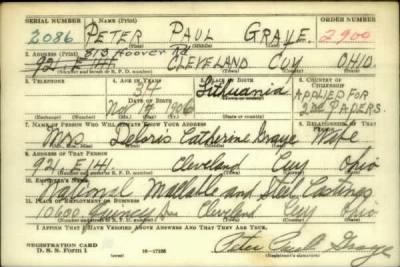 SERIAL NUMBER 1. NAME (Print) ORDER NUMBER
2086 PETER PAUL GRAYE. 2900
(First) (Middle) (Last)
2. ADDRESS (Print) 813 Hoover Rd
921 E 141 CLEVELAND CUY OHIO.
(Number and street or R. F. D. number) (Town) (County) (State)
3. TELEPHONE 4. AGE IN YEARS 5. PLACE OF BIRTH 6. COUNTRY OF CITIZENSHIP
34 Lithuania APPLIED FOR
DATE OF BIRTH 2nd PAPERS.
Nov 1906
(Exchange) (Number) (Mo.) (Day) (Yr.) (State or country)
7. NAME OF PERSON WHO WILL ALWAYS KNOW YOUR ADDRESS 8. RELATIONSHIP OF THAT PERSON
Mrs Deloris Catherine Graye Wife
(Mr., Mrs., Miss) (First) (Middle) (Last)
9. ADDRESS OF THAT PERSON
921 E 141 Cleveland Cuy Ohio
(Number and street or R. F. D. number) (Town) (County) (State)
10. EMPLOYER'S NAME
National Mallable and Steel Castings
11. PLACE OF EMPLOYMENT OR BUSINESS
10600 Cleveland Cuy Ohio
(Number and street or R. F. D. number) (Town) (County) (State)
I AFFIRM THAT I HAVE VERIFIED ABOVE ANSWERS AND THAT THEY ARE TRUE.
REGISTRATION CARD
D. S. S. Form 1 16-17105 Peter Paul Graye
(Registrant's signature)